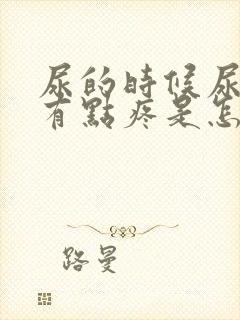 尿的時候尿
有點疼是怎
路曼